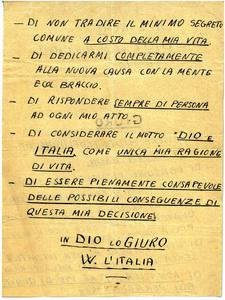 — DI NON TRADIRE IL MINIMO SEGRETO
COMUNE A COSTO DELLA MIA VITA.
— DI DEDICARMI COMPLETAMENTE
ALLA NUOVA CAUSA CON LA MENTE
E COL BRACCIO.
— DI RISPONDERE SEMPRE DI PERSONA
AD OGNI MIO ATTO.
— DI CONSIDERARE IL MOTTO "DIO E
ITALIA, COME UNICA MIA RAGIONE
DI VITA.
— DI ESSERE PIENAMENTE CONSAPEVOLE
DELLE POSSIBILI CONSEGUENZE DI
QUESTA MIA DECISIONE
IN DIO LO GIURO
W. L'ITALIA